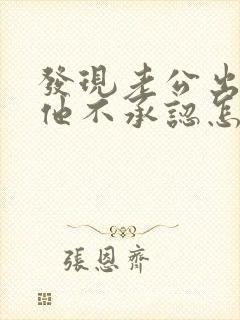 發現老公出
他不承認怎
張恩齊